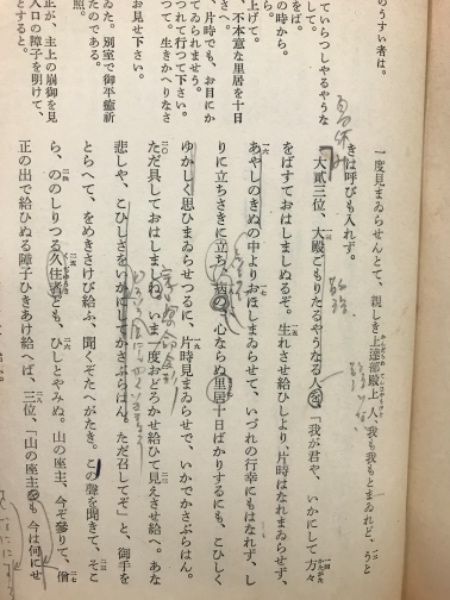 のうすい者は。
ていらつしやるやうな
して。
をば。
の時から。
から。
上げて。
、不本意な里居を十日
さへ。
ゐてゐられませう。
、片時でも、お目にか
つれて行つて下さい。
つて。生きかへりなさ
お見せ下さい。
ゐた。別室で御平癒祈
たのである。
照。
正が、主上の崩御を見
入口の障子を明けて、
とすると。
一度見まゐらせんとて、親しき上達部殿上人、我も我もとまゐれど、うと
きは呼びも入れず。
大貳三位、大殿ごもりたるやうなる人を、「我が君や、いかにして方々
をばすておはしましぬるぞ。生れさせ給ひしより、片時はなれまゐらせず、
あやしのきぬの中よりおほしまゐらせて、いづれの行幸にもはなれず、し
りに立ちさきに立ち、病の、心ならぬ里居十日ばかりするにも、こひしく
ゆかしく思ひまゐらせつるに、片時見まゐらせで、いかでかさぶらはん。
ただ具しておはしましね。いま一度おどろかせ給ひて見えさせ給へ。あな
悲しや、こひしさをいかにしてかさぶらはん。ただ召してぞ」と、御手を
とらへて、をめきさけび給ふ、聞くぞたへがたき。この聲を聞きて、そこ
ら、ののしりつる久住者ども、ひしとやみぬ。山の座主、今ぞ參りて、僧
正の出で給ひぬる障子ひきあけ給へば、三位、「山の座主も今は何にせ